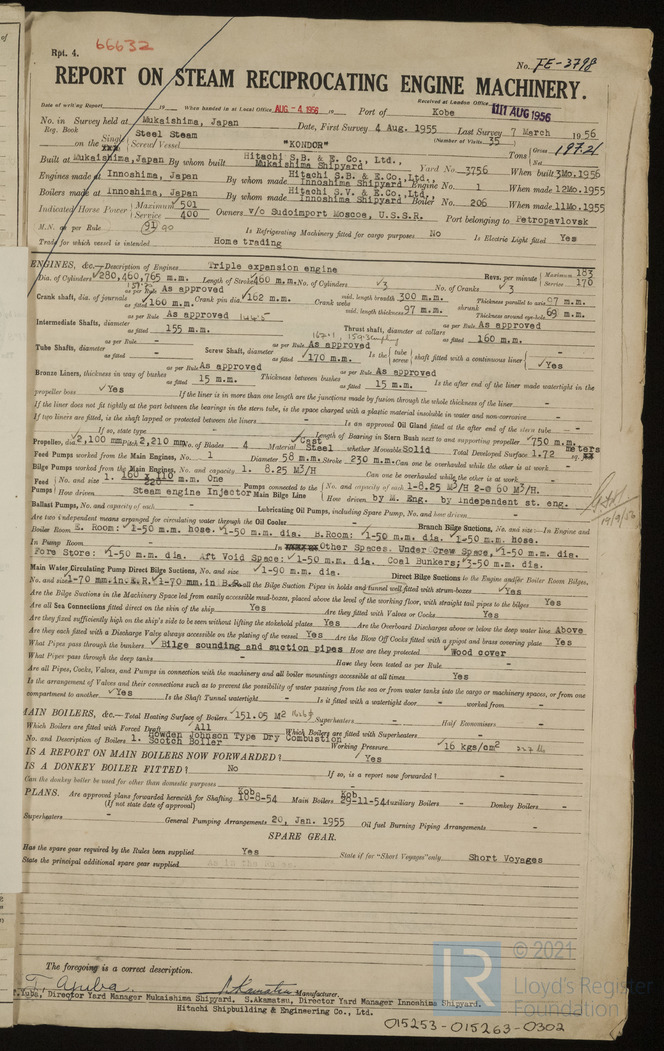 Rpt. 4.
66632
No. FE-3798
REPORT ON STEAM RECIPROCATING ENGINE MACHINERY.
Received at London Office 11 AUG 1956
Date of writing Report 19 When handed in at Local Office AUG - 4 1956 19 Port of Kobe
No. in Survey held at Mukaishima, Japan Date, First Survey 4 Aug. 1955 Last Survey 7 March 1956
Reg. Book (Number of Visits 35)
on the Steel Steam Screw Vessel "KONDOR" Tons Gross 197.21 Net
Built at Mukaishima, Japan By whom built Hitachi S.B. & E. Co., Ltd., Mukaishima Shipyard. Yard No. 3756 When built 3Mo.1956
Engines made at Innoshima, Japan By whom made Hitachi S.B. & E.Co.,Ltd., Innoshima Shipyard Engine No. 1 When made 12Mo.1955
Boilers made at Innoshima, Japan By whom made Hitachi S.V. & E.Co.,Ltd., Innoshima Shipyard Boiler No. 206 When made 11Mo.1955
Indicated Horse Power Maximum 501 Service 400 Owners v/o Sudoimport Moscoe, U.S.S.R. Port belonging to Petropavlovsk
M.N. as per Rule 90 Is Refrigerating Machinery fitted for cargo purposes No Is Electric Light fitted Yes
Trade for which vessel is intended Home trading
ENGINES, &c.—Description of Engines Triple expansion engine
Dia. of Cylinders 280,460,765 m.m. Length of Stroke 460 m.m. No. of Cylinders 3 No. of Cranks 3 Revs. per minute Maximum 183 Service 170
Crank shaft, dia. of journals as per Rule As approved as fitted 160 m.m. Crank pin dia. 162 m.m. Crank webs mid. length breadth 300 m.m. mid. length thickness 97 m.m. shrunk Thickness parallel to axis 97 m.m. Thickness around eye-hole 69 m.m.
Intermediate Shafts, diameter as per Rule As approved as fitted 155 m.m. Thrust shaft, diameter at collars as per Rule As approved as fitted 160 m.m.
Tube Shafts, diameter as per Rule - as fitted - Screw Shaft, diameter as per Rule As approved as fitted 170 m.m. Is the tube screw shaft fitted with a continuous liner - Yes
Bronze Liners, thickness in way of bushes as per Rule As approved as fitted 15 m.m. Thickness between bushes as per Rule As approved as fitted 15 m.m. Is the after end of the liner made watertight in the
propeller boss Yes If the liner is in more than one length are the junctions made by fusion through the whole thickness of the liner -
If the liner does not fit tightly at the part between the bearings in the stern tube, is the space charged with a plastic material insoluble in water and non-corrosive -
If two liners are fitted, is the shaft lapped or protected between the liners - Is an approved Oil Gland fitted at the after end of the stern tube -
If so, state type - Length of Bearing in Stern Bush next to and supporting propeller 750 m.m.
Propeller, dia. 2,100 mm Pitch 2,210 mm No. of Blades 4 Material Cast Steel whether Moveable Solid Total Developed Surface 1.72 sq. meters
Feed Pumps worked from the Main Engines, No. 1 Diameter 58 m.m. Stroke 230 m.m. Can one be overhauled while the other is at work -
Bilge Pumps worked from the Main Engines, No. and capacity 1. 8.25 M³/H Can one be overhauled while the other is at work -
Feed Pumps No. and size 1. 160 x 110 / 220 m.m. One Pumps connected to the Main Bilge Line No. and capacity of each 1-8.25 M³/H 2-@ 60 M³/H.
How driven Steam engine Injector How driven by M. Eng. by independent st. eng.
Ballast Pumps, No. and capacity of each - Lubricating Oil Pumps, including Spare Pump, No. and how driven -
Are two independent means arranged for circulating water through the Oil Cooler - Branch Bilge Suctions, No. and size:—In Engine and
Boiler Room E. Room: 1-50 m.m. hose. 1-50 m.m. dia. B.Room: 1-50 m.m. dia. 1-50 m.m. hose.
In Pump Room - In Other Spaces. Under Crew Space, 1-50 m.m. dia.
Fore Store: 1-50 m.m. dia. Aft Void Space: 1-50 m.m. dia. Coal Bunkers; 3-50 m.m. dia.
Main Water Circulating Pump Direct Bilge Suctions, No. and size 1-90 m.m. dia. Direct Bilge Suctions to the Engine and/or Boiler Room Bilges,
No. and size 1-70 mm.in.E.R. 1-70 mm.in B.R. Are all the Bilge Suction Pipes in holds and tunnel well fitted with strum-boxes Yes
Are the Bilge Suctions in the Machinery Space led from easily accessible mud-boxes, placed above the level of the working floor, with straight tail pipes to the bilges Yes
Are all Sea Connections fitted direct on the skin of the ship Yes Are they fitted with Valves or Cocks Yes
Are they fixed sufficiently high on the ship's side to be seen without lifting the stokehold plates Yes Are the Overboard Discharges above or below the deep water line Above
Are they each fitted with a Discharge Valve always accessible on the plating of the vessel Yes Are the Blow Off Cocks fitted with a spigot and brass covering plate Yes
What Pipes pass through the bunkers Bilge sounding and suction pipes How are they protected Wood cover
What Pipes pass through the deep tanks - Have they been tested as per Rule -
Are all Pipes, Cocks, Valves, and Pumps in connection with the machinery and all boiler mountings accessible at all times Yes
Is the arrangement of Valves and their connections such as to prevent the possibility of water passing from the sea or from water tanks into the cargo or machinery spaces, or from one
compartment to another Yes Is the Shaft Tunnel watertight - Is it fitted with a watertight door - worked from -
MAIN BOILERS, &c.—Total Heating Surface of Boilers 151.05 M² Superheaters - Half Economisers -
Which Boilers are fitted with Forced Draft All Which Boilers are fitted with Superheaters -
No. and Description of Boilers 1. Howden Johnson Type Dry Combustion Scotch Boiler Working Pressure 16 kgs/cm²
IS A REPORT ON MAIN BOILERS NOW FORWARDED? Yes
IS A DONKEY BOILER FITTED? No If so, is a report now forwarded? -
Can the donkey boiler be used for other than domestic purposes -
PLANS. Are approved plans forwarded herewith for Shafting Kob 10-8-54 Main Boilers Kob 29-11-54 Auxiliary Boilers - Donkey Boilers -
(If not state date of approval)
Superheaters - General Pumping Arrangements 20, Jan. 1955 Oil fuel Burning Piping Arrangements -
SPARE GEAR.
Has the spare gear required by the Rules been supplied Yes State if for "Short Voyages" only Short Voyages
State the principal additional spare gear supplied
The foregoing is a correct description.
Manufacturer.
T.Yuba, Director Yard Manager Mukaishima Shipyard, S.Akamatsu, Director Yard Manager Innoshima Shipyard.
Hitachi Shipbuilding & Engineering Co., Ltd.
© 2021
LR
Lloyd's Register
Foundation
015253-015263-0302